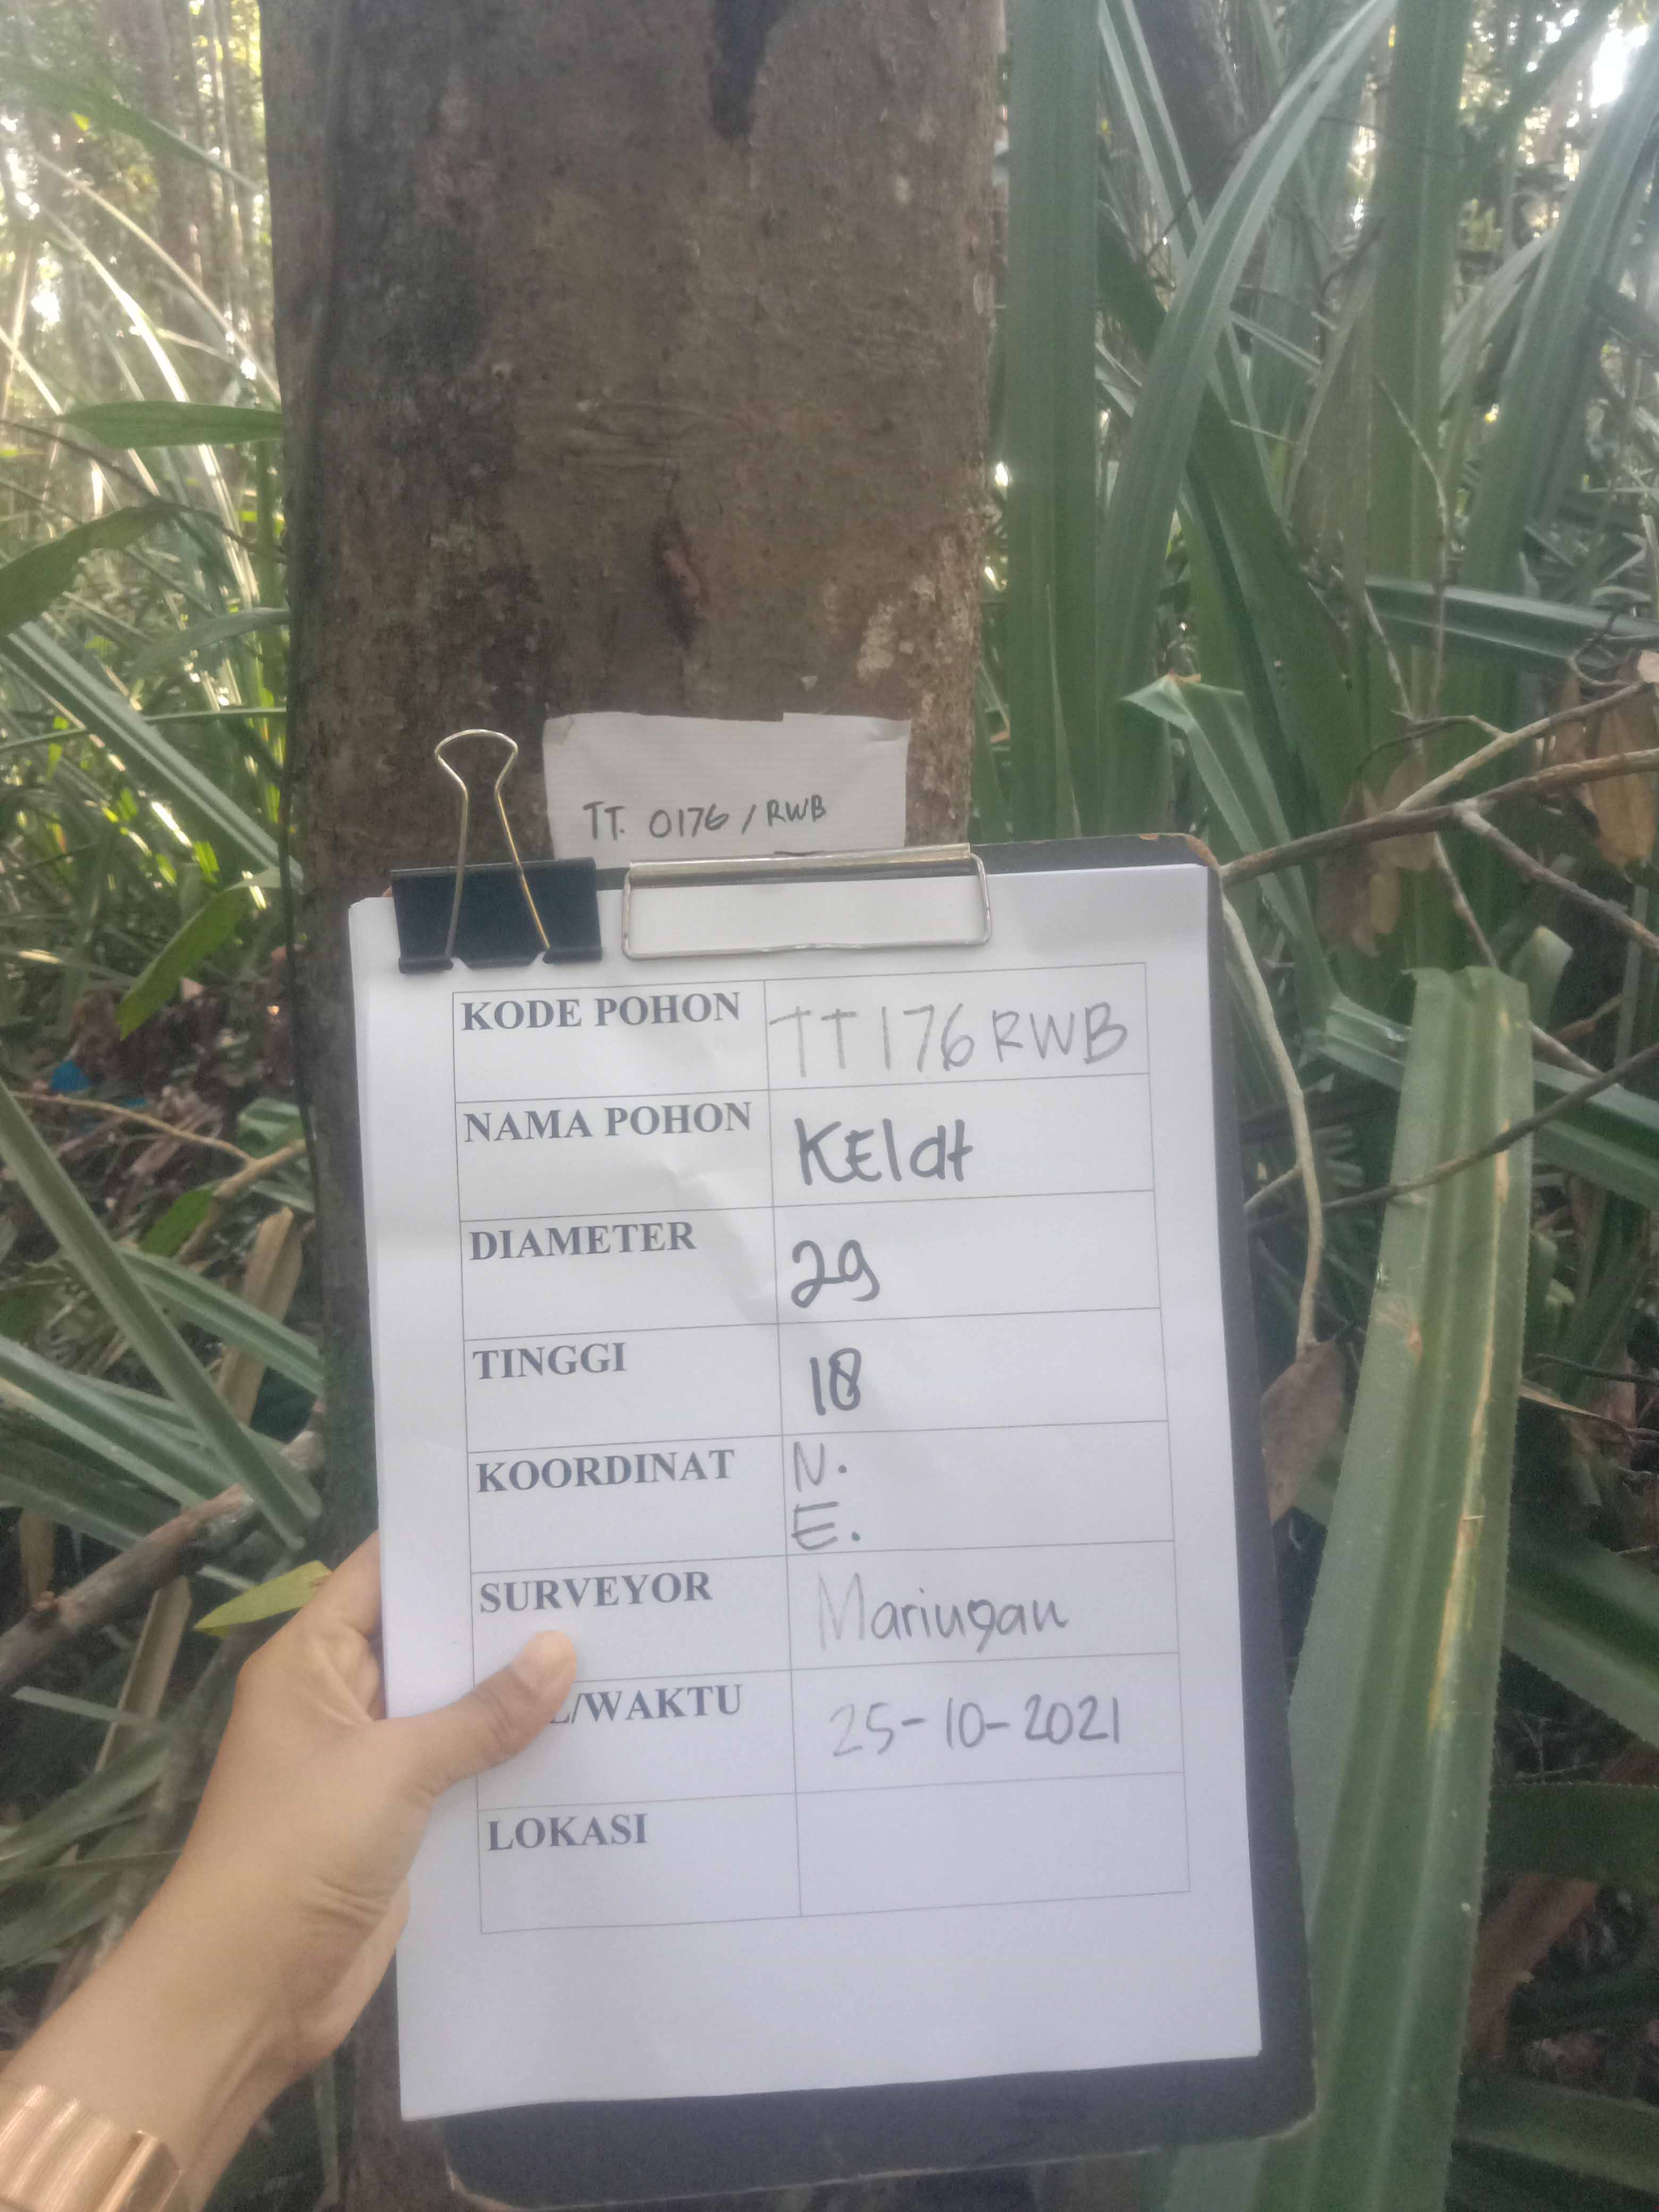 TT. 0176 / RWB
KODE POHON TT176RWB
NAMA POHON KElat
DIAMETER 29
TINGGI 18
KOORDINAT N.
E.
SURVEYOR Mariungan
/WAKTU 25-10-2021
LOKASI